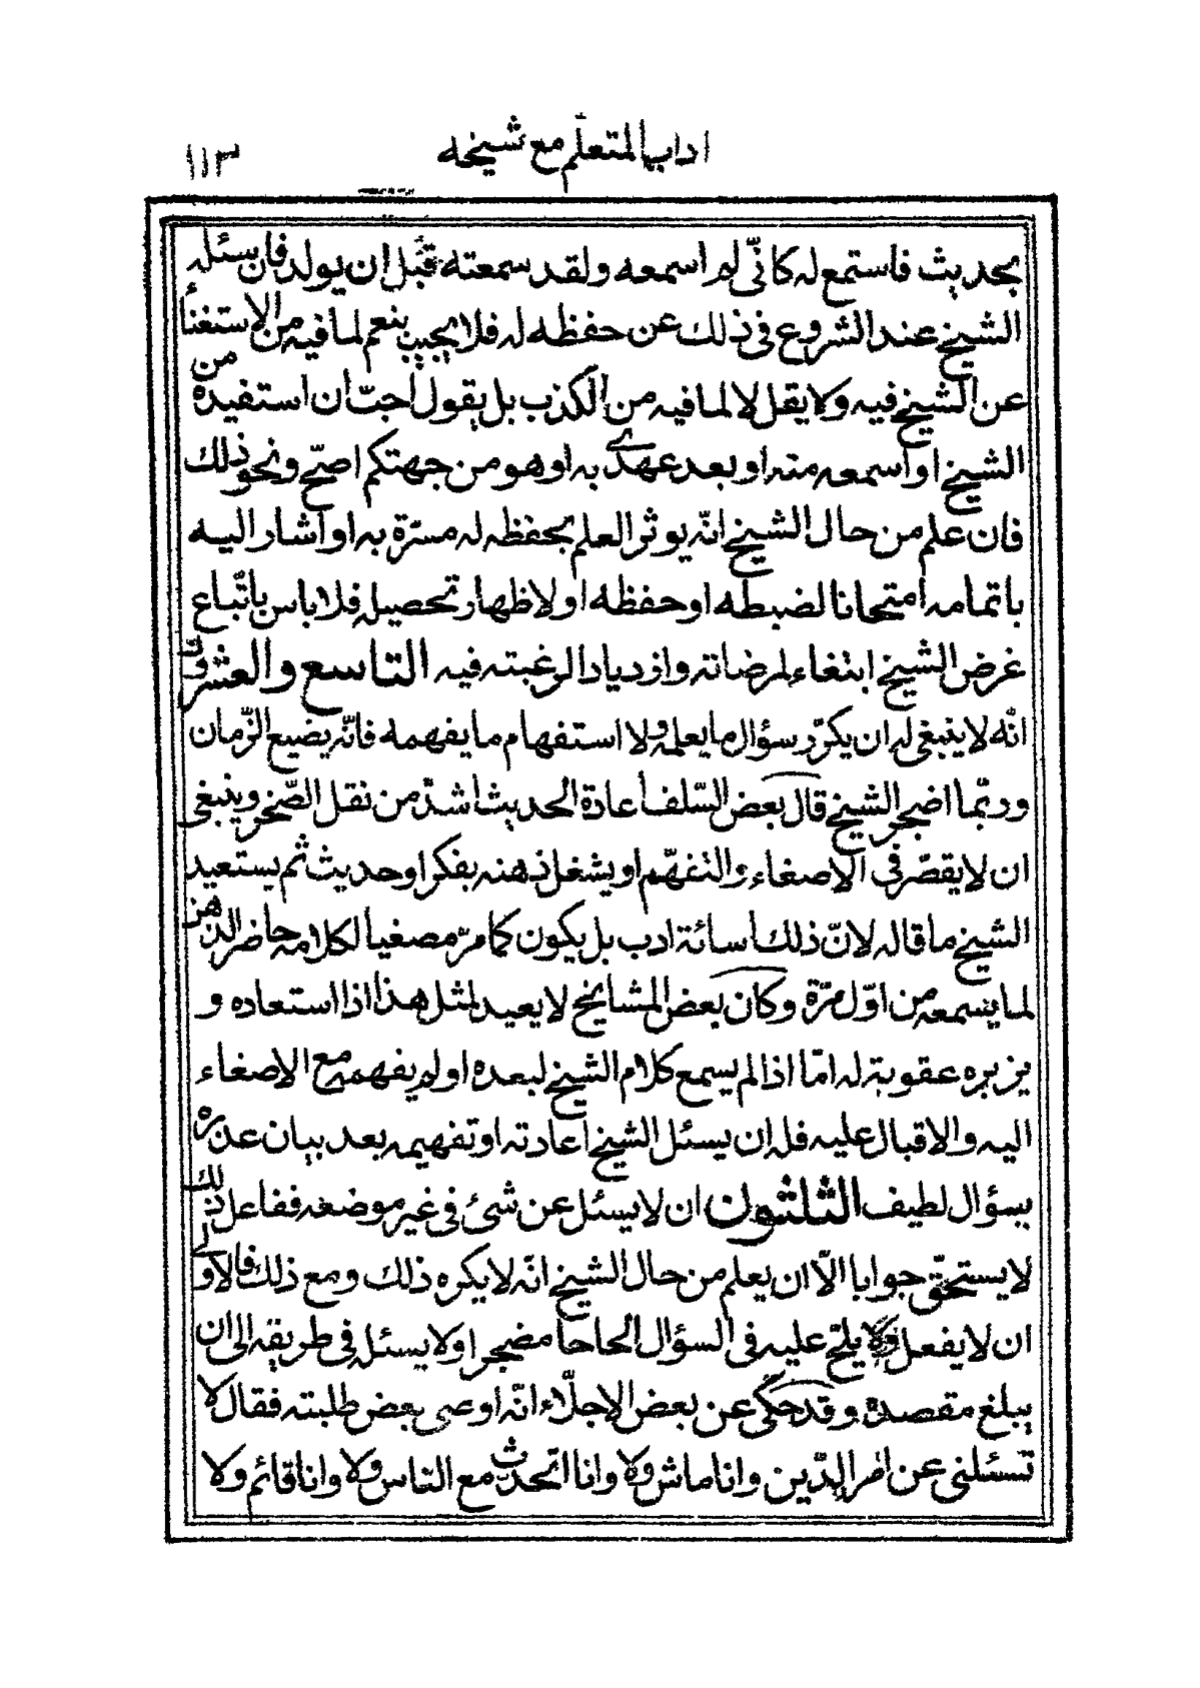 اداب المتعلّم مع شيخه
١١٣
بحديث فاستمع له كانّى لم اسمعه ولقد سمعته قبل ان يولد فان سئله
الشيخ عند الشروع فى ذلك عن حفظه له فلا يجيب بنعم لما فيه من الاستغناء
عن الشيخ فيه ولا يقل لا لما فيه من الكذب بل يقول احبّ ان استفيده من
الشيخ او اسمعه منه او بعد عهدى به او هو من جهتكم اصحّ ونحو ذلك
فان علم من حال الشيخ انّه يوثر العلم بحفظه له مسرّة به او اشار اليه
باتمامه امتحانا لضبطه او حفظه او لاظهار تحصيله فلا باس باتّباع
غرض الشيخ ابتغاء لمرضاته وازدياد الرغبته فيه التاسع والعشرون
انّه لا ينبغى له ان يكرّر سؤال ما يعلمه ولا استفهام ما يفهمه فانّه يضيع الزّمان
وربّما اضجر الشيخ قال بعض السّلف اعادة الحديث اشدّ من نقل الصّخر وينبغى
ان لا يقصّر فى الاصغاء والتفهّم او يشغل ذهنه بفكر او حديث ثم يستعيد
الشيخ ما قاله لانّ ذلك اسائة ادب بل يكون كما مرّ مصغيا لكلامه حاضر الذهن
لما يسمعه من اوّل مرّة وكان بعض المشايخ لا يعيد لمثل هذا اذا استعاده و
يزبره عقوبة له امّا اذا لم يسمع كلام الشيخ لبعده او لم يفهمه مع الاصغاء
اليه والاقبال عليه فله ان يسئل الشيخ اعادته او تفهيمه بعد بيان عذره
بسؤال لطيف الثلثون ان لا يسئل عن شئ فى غير موضعه ففاعل ذلك
لا يستحقّ جوابا الّا ان يعلم من حال الشيخ انّه لا يكره ذلك ومع ذلك فالاولى
ان لا يفعل ولا يلحّ عليه فى السؤال الحاحا مضجرا ولا يسئله فى طريقه الى ان
يبلغ مقصده وقد حكى عن بعض الاجلّاء انّه اوصى بعض طلبته فقال لا
تسئلنى عن امر الدّين وانا ماش ولا وانا اتحدّث مع الناس ولا وانا قائم ولا